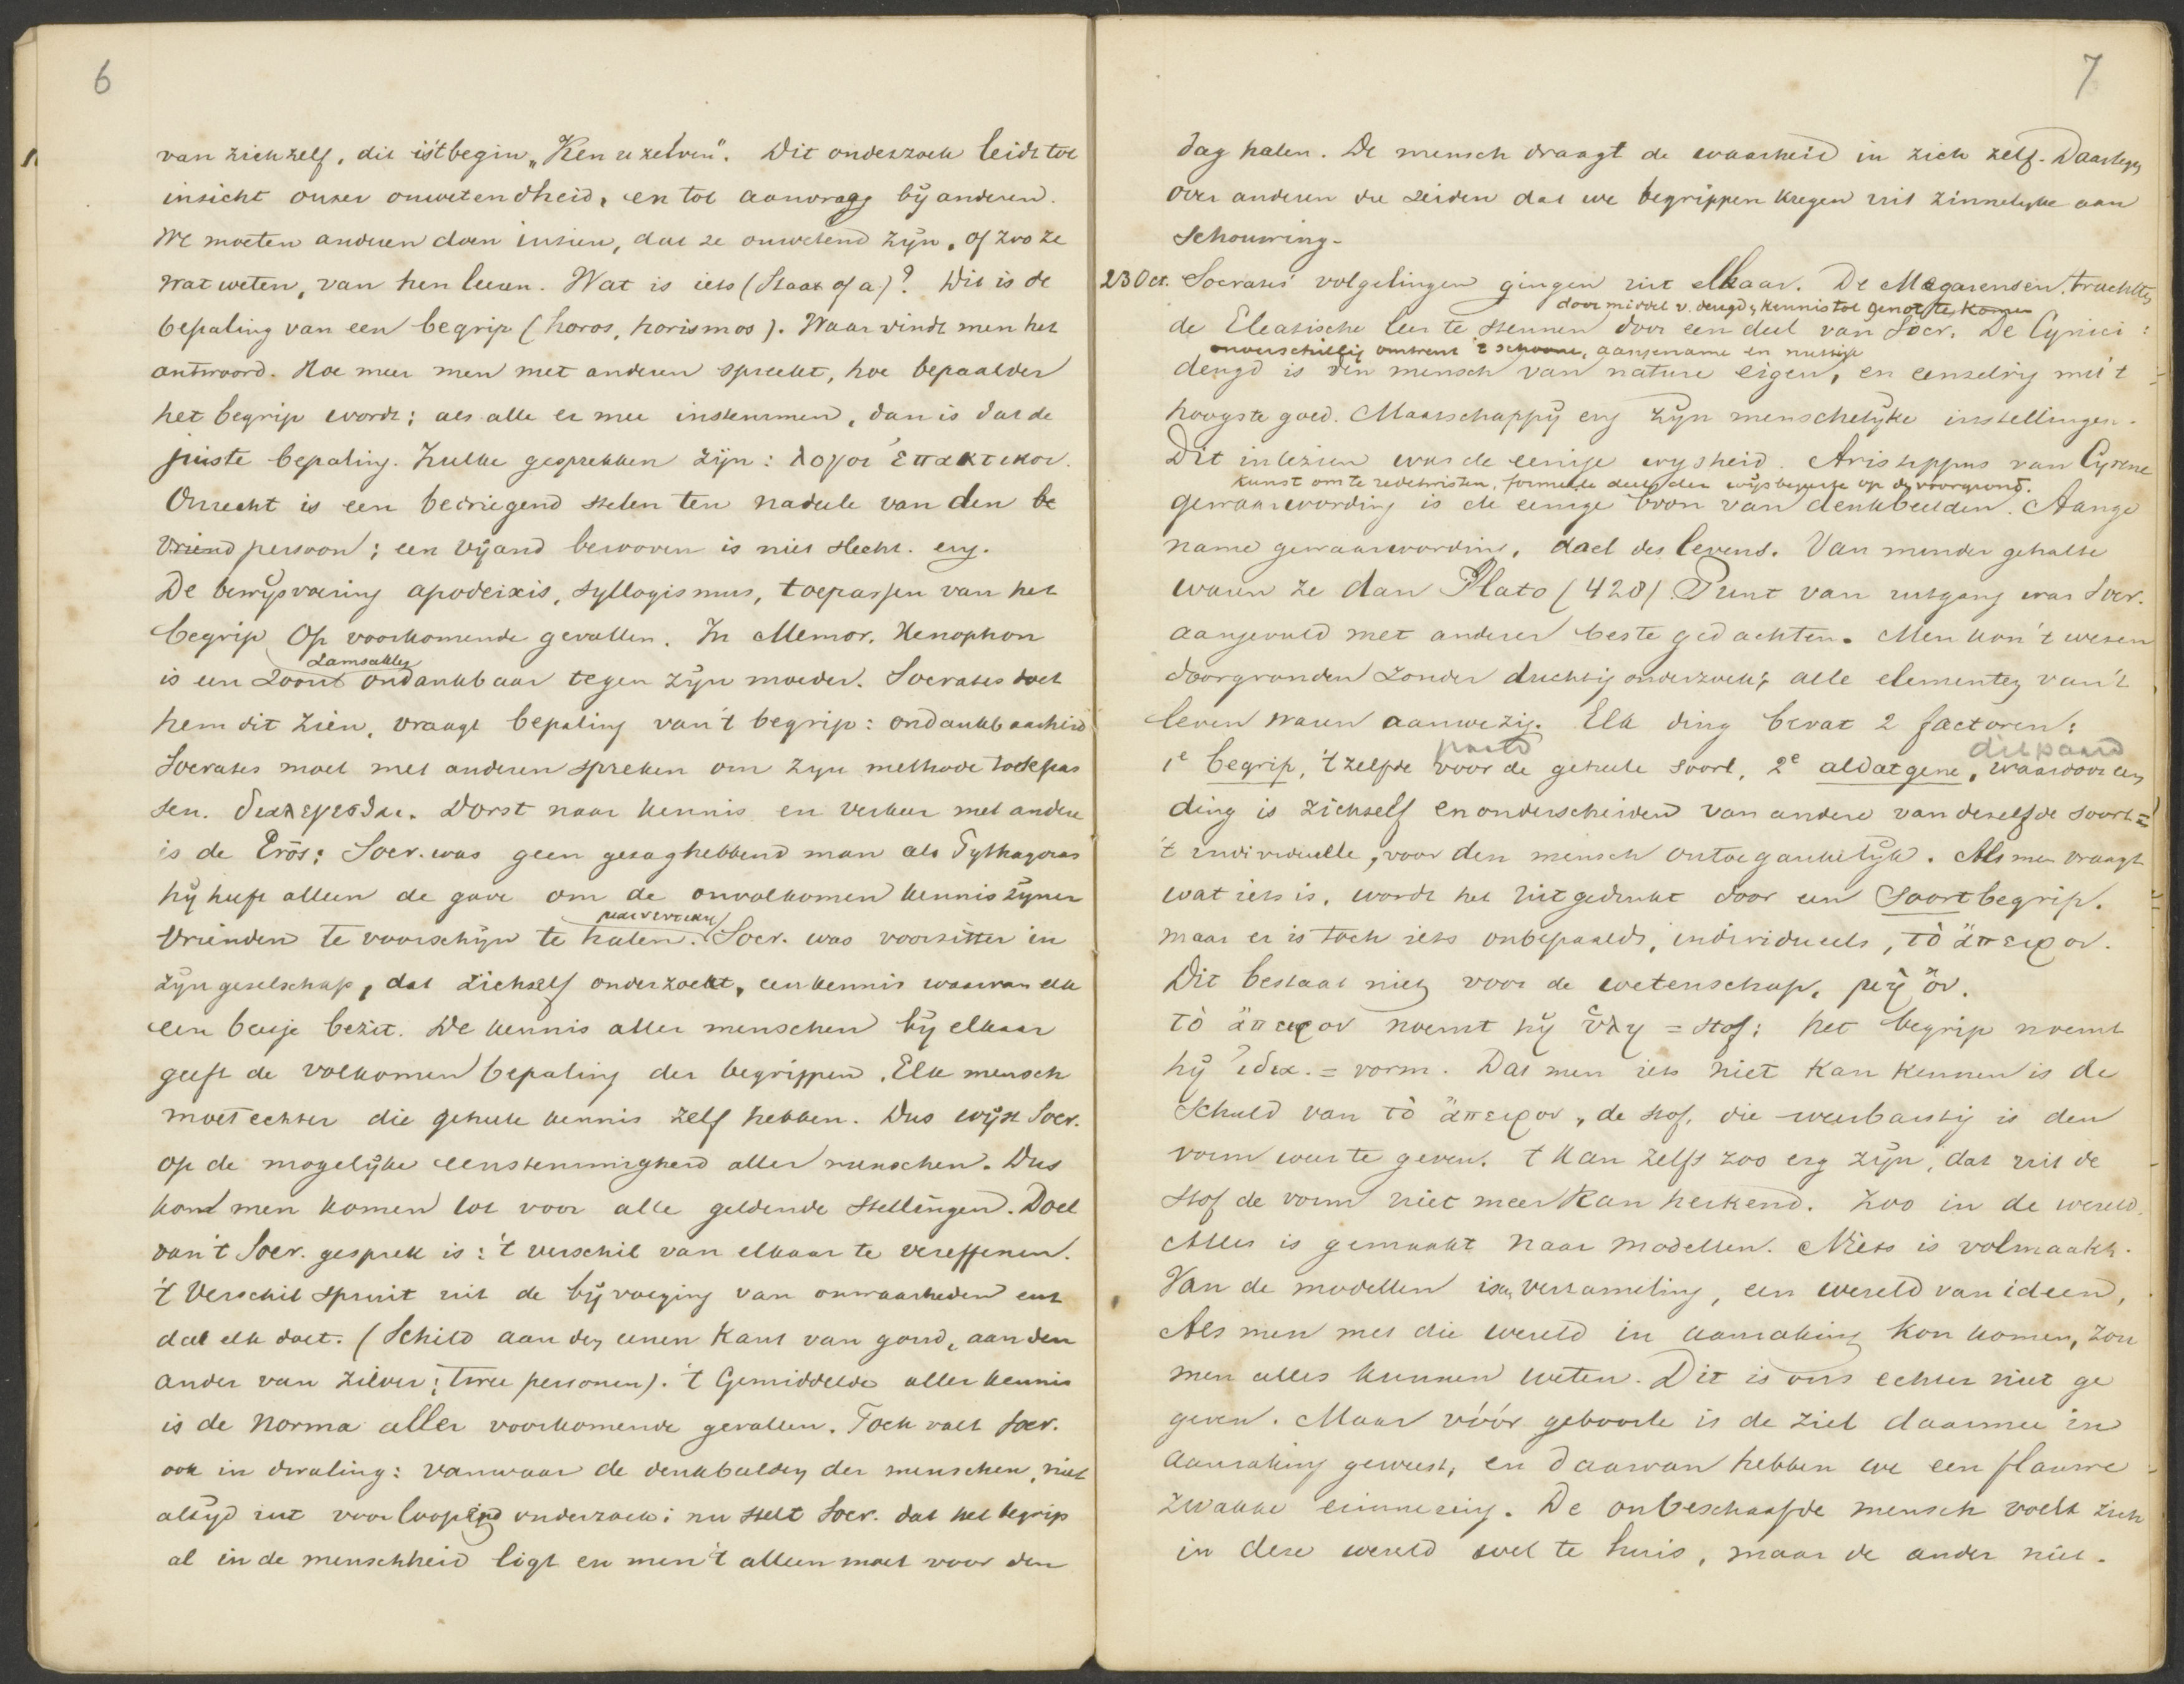 6
van zich zelf, dit is 't begin "Ken u zelven". Dit onderzoek leidt tot
inzicht onzer onwetendheid, en tot aanvrage bij anderen.
We moeten anderen doen inzien, dat ze onwetend zijn, of zoo ze
wat weten, van hen leeren. Wat is iets (Staat of a)? Dit is de
bepaling van een begrip (horos, horismos). Waar vindt men het
antwoord. Hoe meer men met anderen spreekt, hoe bepaalder
het begrip wordt; als alle er mee instemmen, dan is dat de
juiste bepaling. Zulke gesprekken zijn: λογοι ἐπακτικοι.
Onrecht is een bedriegend stelen ten nadeele van den be
vriend persoon; een vijand berooven is niet slecht. enz.
De bewijsvoering apodeixis, syllogismus, toepassen van het
begrip op voorkomende gevallen. In Memor. Xenophon
Lamsakles
is een Zoont ondankbaar tegen zijn moeder. Socrates doet
hem dit zien, vraagt bepaling van 't begrip: ondankbaarheid
Socrates moet met anderen spreken om zijn methode toe te pas
sen. διαλεγεσθαι. Dorst naar kennis en verkeer met andere
is de Erōs; Socr. was geen gezaghebbend man als Pythagoras
hij heeft alleen de gave om de onvolkomen kennis zijner
vrienden te voorschijn te halen. Socr. was voorzitter in
zijn gezelschap, dat zichzelf onderzoekt, een kennis waarvan elk
een beetje bezit. De kennis aller menschen bij elkaar
geeft de volkomen bepaling der begrippen. Elk mensch
moet echter die geheele kennis zelf hebben. Dus wijst Socr.
op de mogelijke eenstemmigheid aller menschen. Dus
kond men komen tot voor alle geldende stellingen. Doel
van 't Socr. gesprek is: 't verschil van elkaar te vereffenen.
't Verschil spruit uit de bijvoeging van onwaarheden ent
dat elk doet. (Schild aan den eenen kant van goud, aan den
ander van zilver; twee personen). 't Gemiddelde aller kennis
is de norma aller voorkomende gevallen. Toch valt Socr.
ook in dwaling: vanwaar de denkbeelden der menschen, niet
altijd uit voorloopend onderzoek; nu stelt Socr. dat het begrip
al in de menschheid ligt en men 't alleen moet voor den
7
dag halen. De mensch draagt de waarheid in zich zelf. Daartegen
over anderen die zeiden dat we begrippen kregen uit zinnelijke aan
schouwing.
23 Oct. Socrates' volgelingen gingen uit elkaar. De Megarensen trachtten
door middel v. deugd, kennis tot genot te komen
de Eleatische leer te steunen door een deel van Socr. De Cynici:
onverschillig omtrent 't schoone, aangename en nuttige
deugd is den mensch van nature eigen, en eenzelvig mit 't
hoogste goed. Maatschappij enz zijn menschelijke instellingen.
Dit inlezien was de eenige wijsheid. Aristippus van Cyrene
kunst om te redetwisten, formeele deelen der wijsbegeerte op den voorgrond.
gewaarwording is de eenige bron van denkbeelden. Aange
name gewaarwording, doel des levens. Van minder gehalte
waren ze dan Plato (428). Punt van uitgang was Socr.
aangevuld met anderer beste gedachten. Men kon 't wezen
doorgronden zonder duchtig onderzoek; alle elementen van 't
leven waren aanwezig. Elk ding bevat 2 factoren:
paard
dit paard
1e begrip, 't zelfde voor de geheele soort, 2e al datgene, waardoor een
ding is zichzelf en onderscheiden van andere van dezelfde soort =
't individueele, voor den mensch ontoegankelijk. Als men vraagt
wat iets is, wordt het uitgedrukt door een Soortbegrip.
maar er is toch iets onbepaalds, individueels, τὸ ἄπειρον.
Dit bestaat niet voor de wetenschap, μὴ ὄν.
τὸ ἄπειρον noemt hij ὕλη = stof; het begrip noemt
hij ἰδεα. = vorm. Dat men iets niet kan kennen is de
schuld van τὸ ἄπειρον, de stof, die weerbarstig is den
vorm weer te geven. 't Kan zelfs zoo erg zijn, dat uit de
stof de vorm niet meer kan herkend. Zoo in de wereld.
Alles is gemaakt naar modellen. Niets is volmaakt.
Van de modellen is een verzameling, een wereld van ideen,
Als men met die wereld in aanraking kon komen, zou
men alles kunnen weten. Dit is ons echter niet ge
geven. Maar vóór geboorte is de ziel daarmee in
aanraking geweest, en daarvan hebben we een flauwe
zwakke erinnering. De onbeschaafde mensch voelt zich
in deze wereld wel te huis, maar de ander niet.